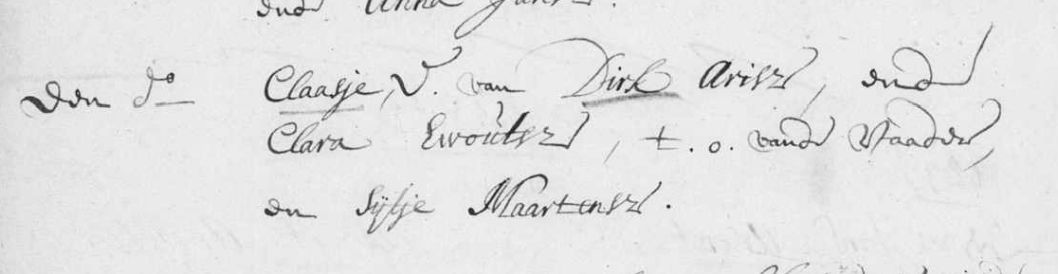 ende Anna Jans.
Den do Claasje, D. van Dirk Arisz, ende
Clara Ewoutsz, t. o. vande Vaader,
en Sijtje Maartensz.